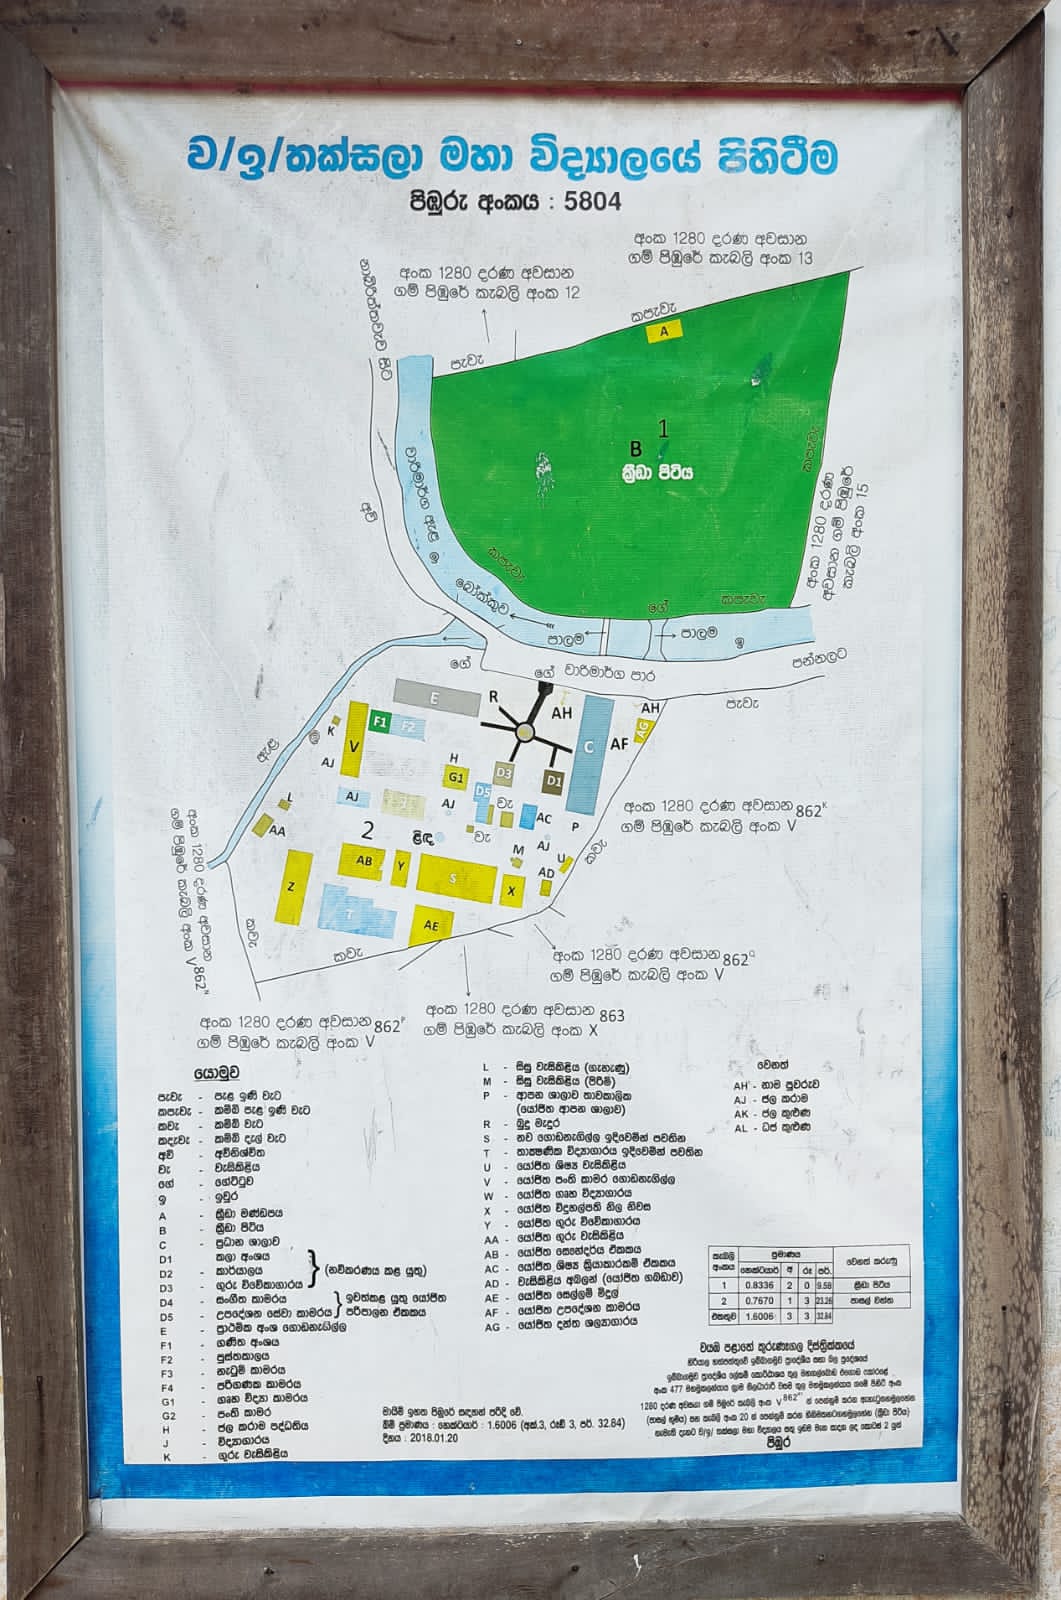 ව/ඉ/තක්සලා මහා විද්‍යාලයේ පිහිටීම
පිඹුරු අංකය : 5804
අංක 1280 දරණ අවසාන
ගම් පිඹුරේ කැබලි අංක 13
අංක 1280 දරණ අවසාන
ගම් පිඹුරේ කැබලි අංක 12
කපැවැ
A
පැවැ
1
B
ක්‍රීඩා පිටිය
කපැවැ
අංක 1280 දරණ
අවසාන ගම් පිඹුරේ
කැබලි අංක 15
වාරිමාර්ග ඇළ
ඉ
අවි
කපැවැ
බෝක්කුව
ගේ
කපැවැ
පාලම
පාලම
ඉ
ගේ
ගේ වාරිමාර්ග පාර
පන්නලට
පැවැ
E
R
AH
AH
F1
F2
K
V
AJ
C
AF
AG
H
G1
D3
D1
D5
AJ
AJ
වැ
AC
P
L
AA
2
ළිඳ
වැ
M
AJ
U
කවැ
AD
AB
Y
S
X
Z
T
AE
ඇළ
කවැ
කවැ
අංක 1280 දරණ අවසාන 862ᴷ
ගම් පිඹුරේ කැබලි අංක V
අංක 1280 දරණ අවසාන
ගම් පිඹුරේ කැබලි අංක V 862ᴺ
අංක 1280 දරණ අවසාන 862Q
ගම් පිඹුරේ කැබලි අංක V
අංක 1280 දරණ අවසාන 862ᴾ
ගම් පිඹුරේ කැබලි අංක V
අංක 1280 දරණ අවසාන 863
ගම් පිඹුරේ කැබලි අංක X
යොමුව
පැවැ - පැළ ඉණි වැට
කපැවැ - කම්බි පැළ ඉණි වැට
කවැ - කම්බි වැට
කදැවැ - කම්බි දැල් වැට
අවි - අවිනිශ්චිත
වැ - වැසිකිළිය
ගේ - ගේට්ටුව
ඉ - ඉවුර
A - ක්‍රීඩා මණ්ඩපය
B - ක්‍රීඩා පිටිය
C - ප්‍රධාන ශාලාව
D1 - කලා අංශය
D2 - කාර්යාලය
D3 - ගුරු විවේකාගාරය } (නවීකරණය කළ යුතු)
D4 - සංගීත කාමරය
D5 - උපදේශන සේවා කාමරය } ඉවත්කළ යුතු යෝජිත පරිපාලන ඒකකය
E - ප්‍රාථමික අංශ ගොඩනැගිල්ල
F1 - ගණිත අංශය
F2 - පුස්තකාලය
F3 - නැටුම් කාමරය
F4 - පරිගණක කාමරය
G1 - ගෘහ විද්‍යා කාමරය
G2 - පංති කාමර
H - ජල කරාම පද්ධතිය
J - විද්‍යාගාරය
K - ගුරු වැසිකිළිය
L - සිසු වැසිකිළිය (ගැහැණු)
M - සිසු වැසිකිළිය (පිරිමි)
P - ආපන ශාලාව තාවකාලික
(යෝජිත ආපන ශාලාව)
R - බුදු මැදුර
S - නව ගොඩනැගිල්ල ඉදිවෙමින් පවතින
T - තාක්‍ෂණික විද්‍යාගාරය ඉදිවෙමින් පවතින
U - යෝජිත ශිෂ්‍ය වැසිකිළිය
V - යෝජිත පංති කාමර ගොඩනැගිල්ල
W - යෝජිත ගෘහ විද්‍යාගාරය
X - යෝජිත විදුහල්පති නිල නිවස
Y - යෝජිත ගුරු විවේකාගාරය
AA - යෝජිත ගුරු වැසිකිළිය
AB - යෝජිත සෞන්දර්ය ඒකකය
AC - යෝජිත ශිෂ්‍ය ක්‍රියාකාරකම් ඒකකය
AD - වැසිකිළිය අබලන් (යෝජිත ගබඩාව)
AE - යෝජිත සෙල්ලම් මිදුල
AF - යෝජිත උපදේශන කාමරය
AG - යෝජිත දන්ත ශල්‍යාගාරය
වෙනත්
AH - නාම පුවරුව
AJ - ජල කරාම
AK - ජල කුළුණ
AL - ධජ කුළුණ
කැබලි අංකය ප්‍රමාණය වෙනත් කරුණු
හෙක්ටයාර් අ රූ පර්.
1 0.8336 2 0 9.58 ක්‍රීඩා පිටිය
2 0.7670 1 3 23.26 පාසල් වත්ත
එකතුව 1.6006 3 3 32.84
මායිම් ඉහත පිඹුරේ සඳහන් පරිදි වේ.
බිම් ප්‍රමාණය : හෙක්ටයාර් : 1.6006 (අක්.3, රූඩ් 3, පර්. 32.84)
දිනය : 2018.01.20
වයඹ පළාතේ කුරුණෑගල දිස්ත්‍රික්කයේ
පිඹුර